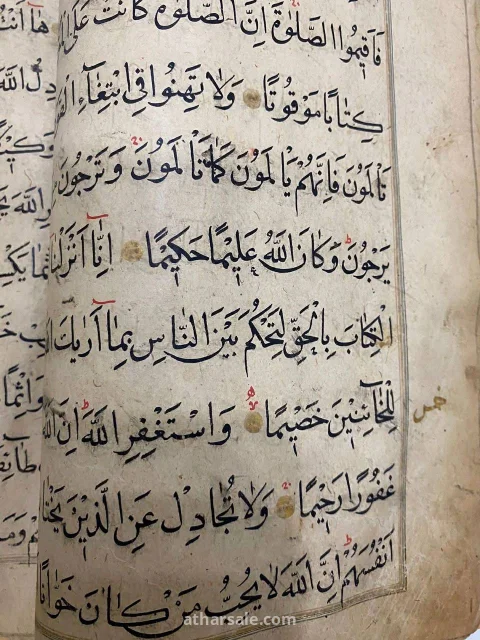 فَاَقِيمُوا الصَّلٰوةَ اِنَّ الصَّلٰوةَ كَانَتْ عَلَى
كِتَابًا مَوْقُوتًا وَلَا تَهِنُوا فِي ابْتِغَاءِ
تَأْلَمُونَ فَاِنَّهُمْ يَأْلَمُونَ كَمَا تَأْلَمُونَ وَتَرْجُونَ
يَرْجُونَ وَكَانَ اللّٰهُ عَلِيمًا حَكِيمًا اِنَّا اَنْزَلْنَا
الْكِتَابَ بِالْحَقِّ لِتَحْكُمَ بَيْنَ النَّاسِ بِمَا اَرٰيكَ
لِلْخَائِنِينَ خَصِيمًا وَاسْتَغْفِرِ اللّٰهَ اِنَّ اللّٰهَ
غَفُورًا رَحِيمًا وَلَا تُجَادِلْ عَنِ الَّذِينَ
اَنْفُسَهُمْ اِنَّ اللّٰهَ لَا يُحِبُّ مَنْ كَانَ خَوَّانًا
atharsale.com